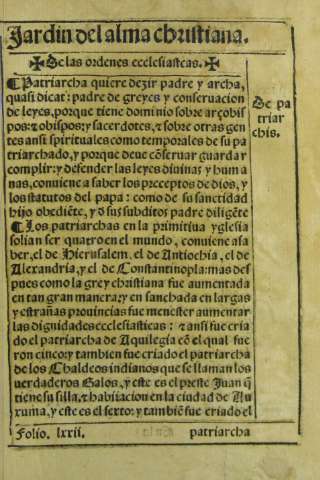 Jardin del alma christiana.
✠De las ordenes ecclesiasteas.✠
¶Patriarcha quiere dezir padre y archa,
quasi dicat: padre de greyes y conseruacion
de leyes, porque tiene dominio sobre arçobis
pos: ⁊ obispos: y sacerdotes, ⁊ sobre otras gen
tes ansi spirituales como temporales de su pa
triarchado, y porque deue cõseruar guardar
complir: y defender las leyes diuinas y huma
nas, conuiene a saber los preceptos de dios, y
los statutos del papa: como de su sanctidad
hijo obediẽte, y d̃ sus subditos padre diligẽte
¶Los patriarchas en la primitiua yglesia
solian ser quatro en el mundo, conuiene a sa
ber, el de Hierusalem, el de Antiochia, el de
Alexandria, y el de Constantinopla: mas des
pues como la grey christiana fue aumentada
en tan grã manera: y ensanchada en largas
y estrañas prouincias fue menester aumentar
las dignidades ecclesiasticas: ⁊ ansi fue cria
do el patriarcha de Aquilegia cõ el qual fue
ron cinco: y tambien fue criado el patriarcha
de los Chaldeos indianos que se llaman los
verdaderos Galos, y este es el preste Juan q̃
tiene su silla, ⁊ habitacion en la ciudad de Au
xuma, y este es el sexto: y tambiẽ fue criado el
De pa
triar
chis.
Folio. lxxii. patriarcha